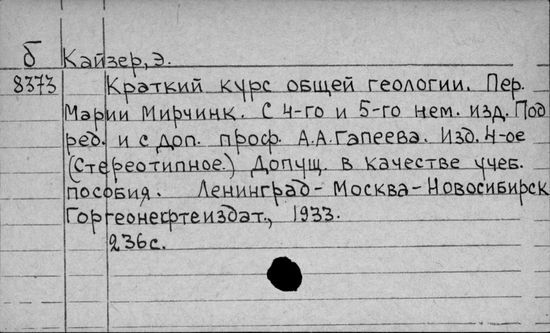 б Кайзер, Э.
8373 Краткий курс общей геологии. Пер.
Марии Мирчинк. С 4-го и 5-го нем. изд. Под
ред. и с доп. проф. А.А. Гапеева. Изд. 4-ое
(Стереотипное.) Допущ. в качестве учеб.
пособия. Ленинград-Москва-Новосибирск
Горгеонефтеиздат., 1933.
236с.